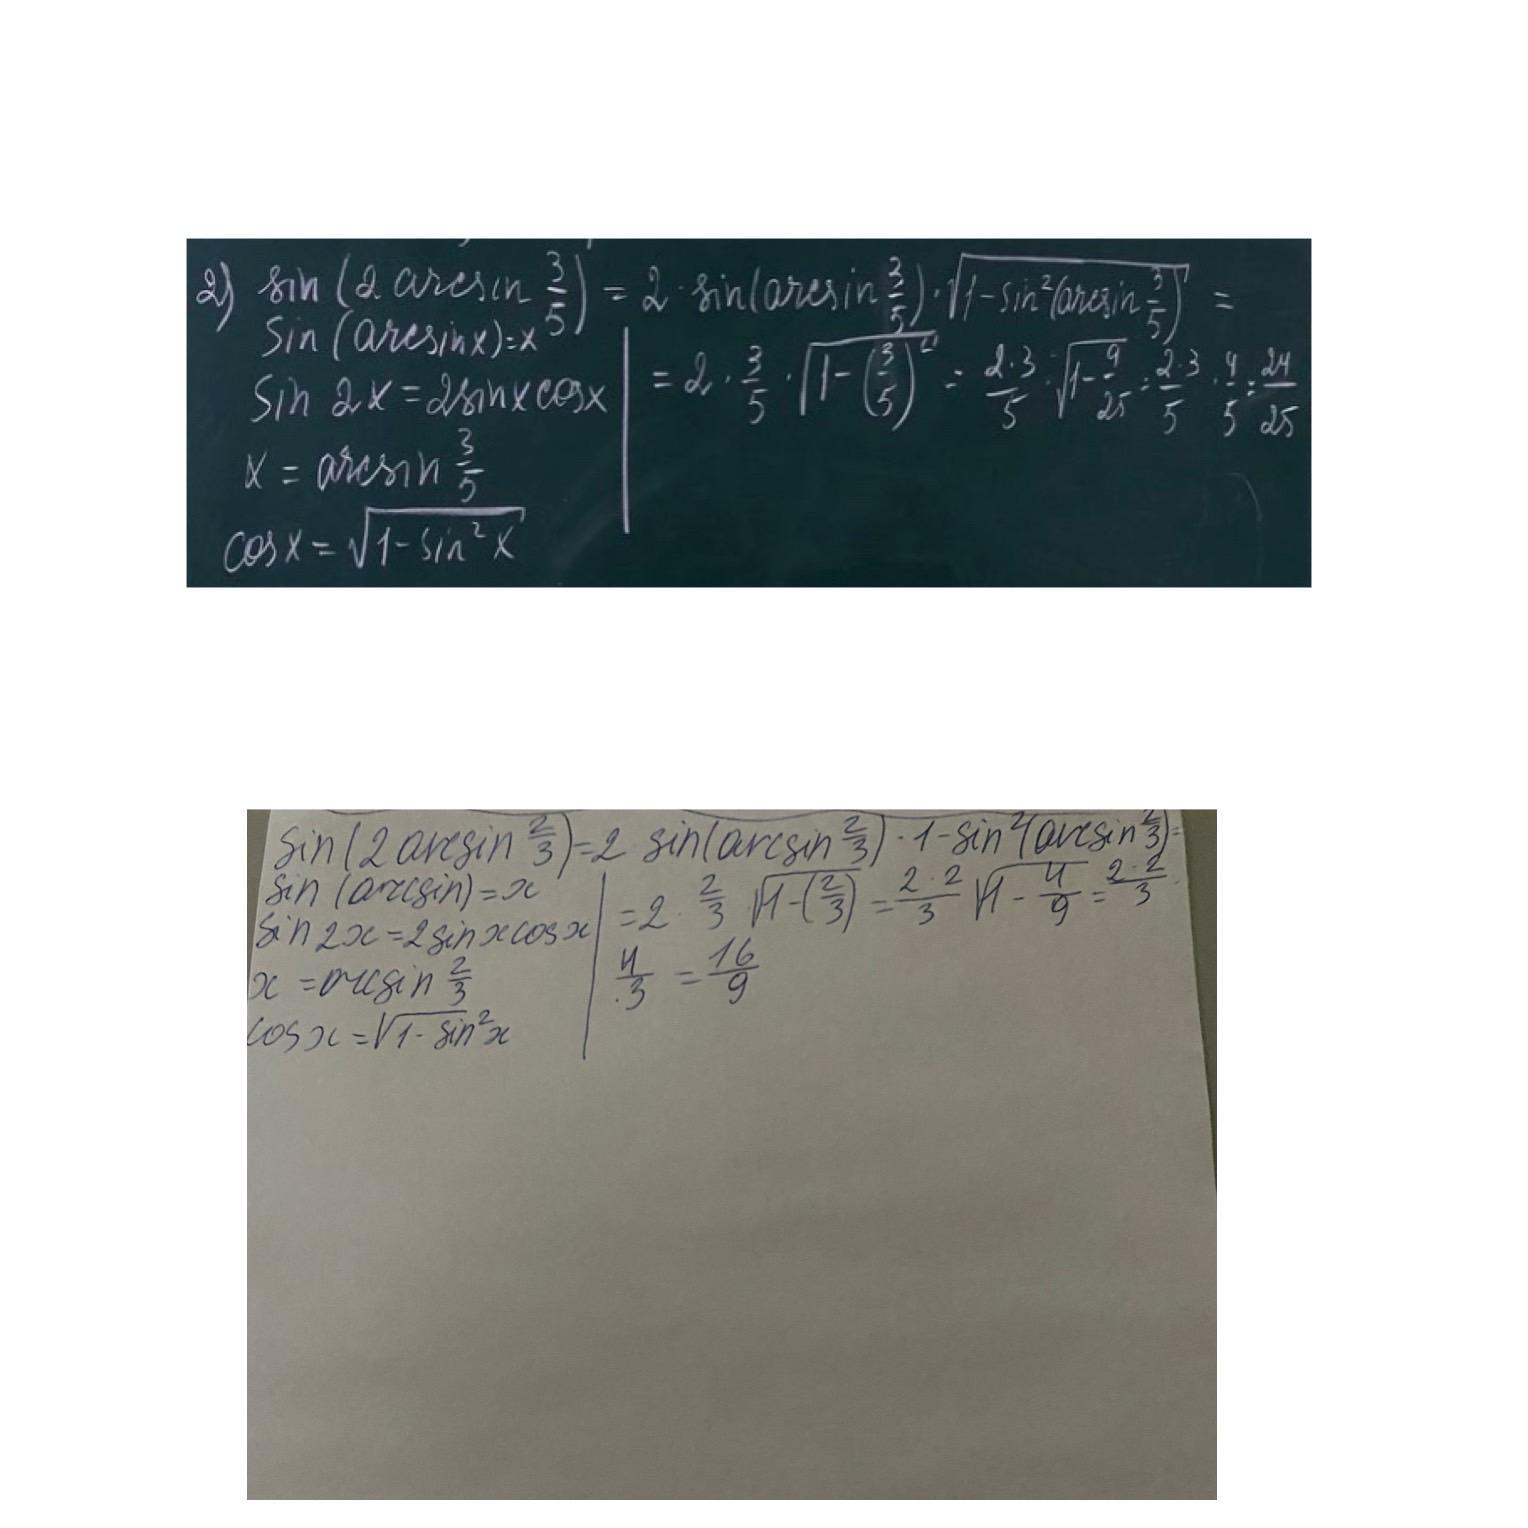 2) sin (2 arcsin 3/5) = 2 · sin(arcsin 3/5) · √(1-sin²(arcsin 3/5)) =
sin (arcsin x) = x
sin 2x = 2sinx cosx
x = arcsin 3/5
cos x = √(1-sin² x)
= 2 · 3/5 · √(1-(3/5)²) = 2·3/5 · √(1-9/25) = 2·3/5 · 4/5 = 24/25
sin(2 arcsin 2/3) = 2 sin(arcsin 2/3) · 1-sin²(arcsin 2/3) =
sin (arcsin) = x
sin 2x = 2 sin x cos x
x = arcsin 2/3
cos x = √(1-sin²x)
= 2 · 2/3 · √(1-(2/3)) = 2·2/3 √(1-4/9) = 2·2/3 ·
4/3 = 16/9